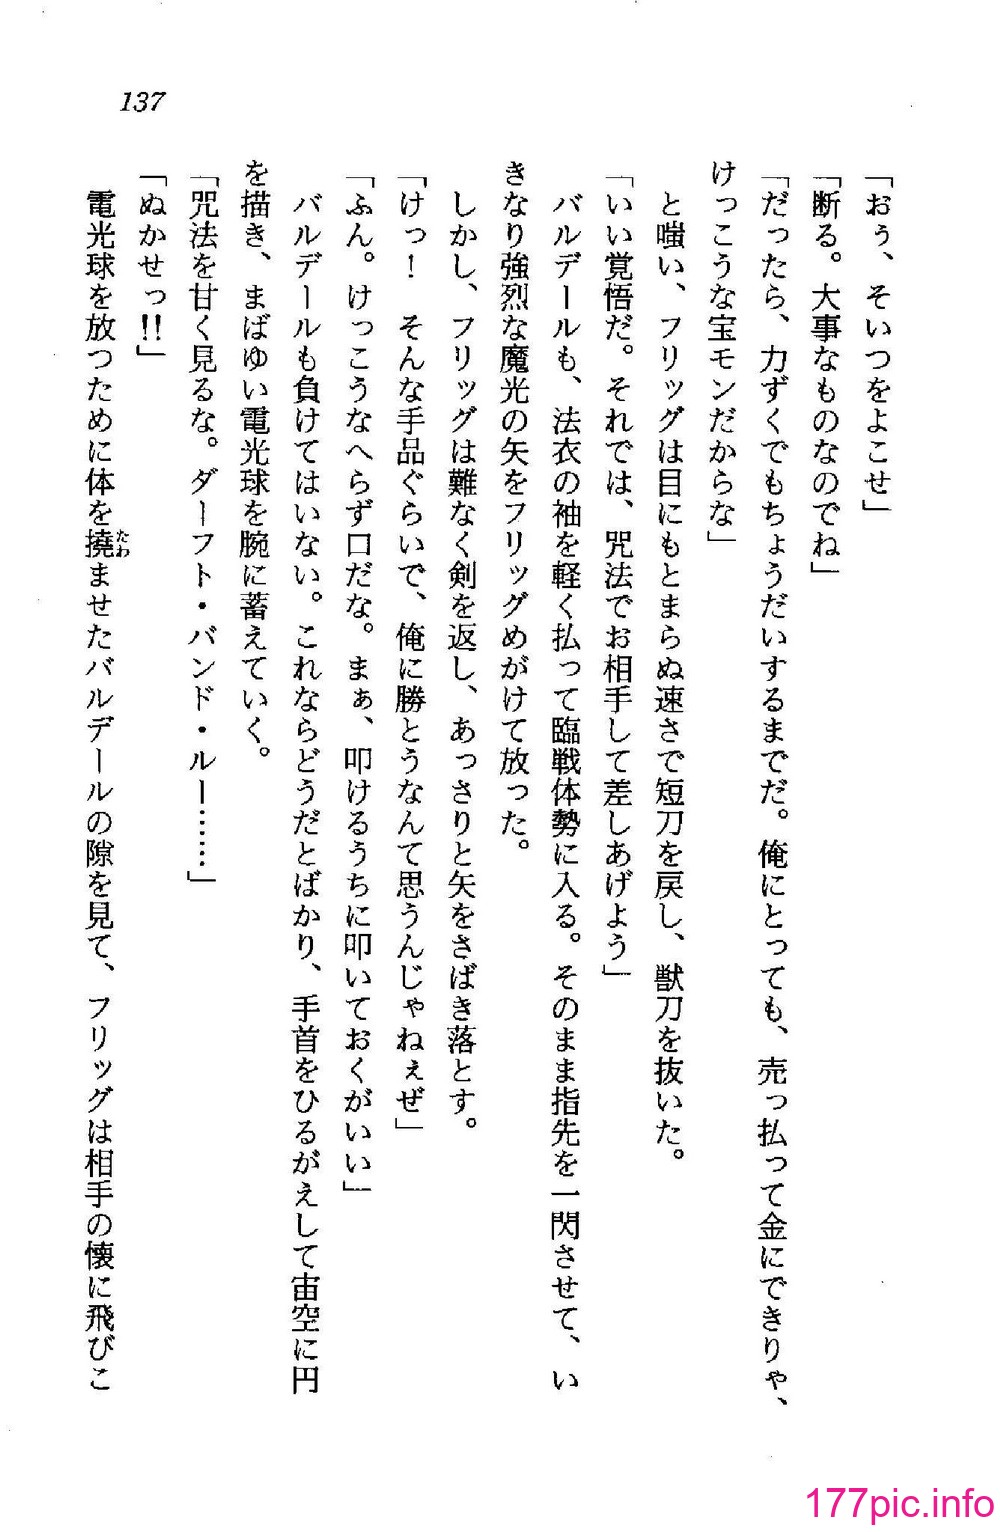 137
「おぅ、そいつをよこせ」
「断る。大事なものなのでね」
「だったら、力ずくでもちょうだいするまでだ。俺にとっても、売っ払って金にできりゃ、
けっこうな宝モンだからな」
と嗤い、フリッグは目にもとまらぬ速さで短刀を戻し、獣刀を抜いた。
「いい覚悟だ。それでは、咒法でお相手して差しあげよう」
バルデールも、法衣の袖を軽く払って臨戦体勢に入る。そのまま指先を一閃させて、い
きなり強烈な魔光の矢をフリッグめがけて放った。
しかし、フリッグは難なく剣を返し、あっさりと矢をさばき落とす。
「けっ！　そんな手品ぐらいで、俺に勝とうなんて思うんじゃねぇぜ」
「ふん。けっこうなへらず口だな。まぁ、叩けるうちに叩いておくがいい」
バルデールも負けてはいない。これならどうだとばかり、手首をひるがえして宙空に円
を描き、まばゆい電光球を腕に蓄えていく。
「咒法を甘く見るな。ダーフト・バンド・ルー……」
「ぬかせっ!!」
電光球を放つために体を撓ませたバルデールの隙を見て、フリッグは相手の懐に飛びこ
たわ
177pic.info